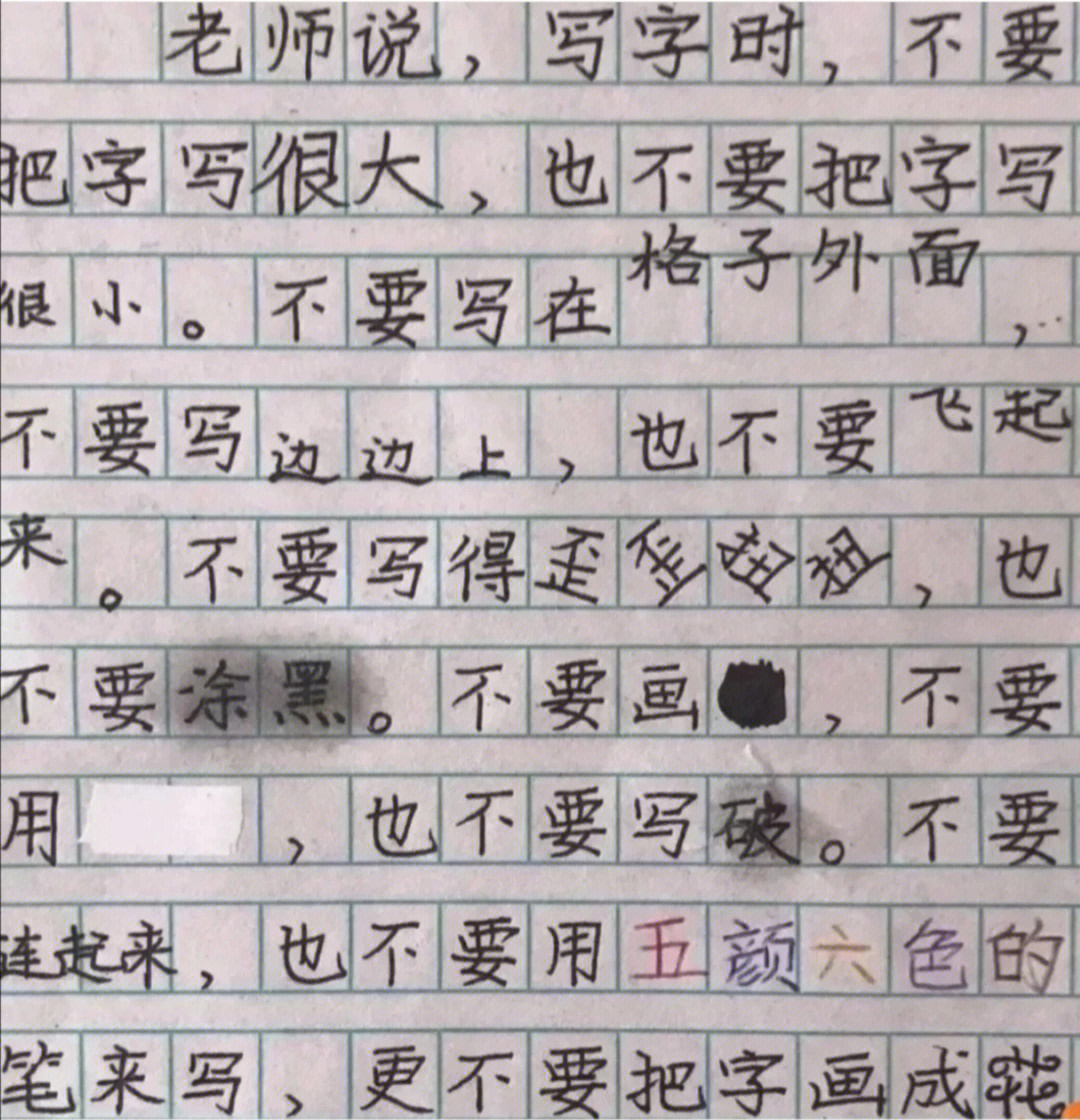 老师说，写字时，不要
把字写很大，也不要把字写
很小。不要写在格子外面，
不要写边边上，也不要飞起
来。不要写得歪歪扭扭，也
不要涂黑。不要画，不要
用，也不要写破。不要
连起来，也不要用五颜六色的
笔来写，更不要把字画成花。